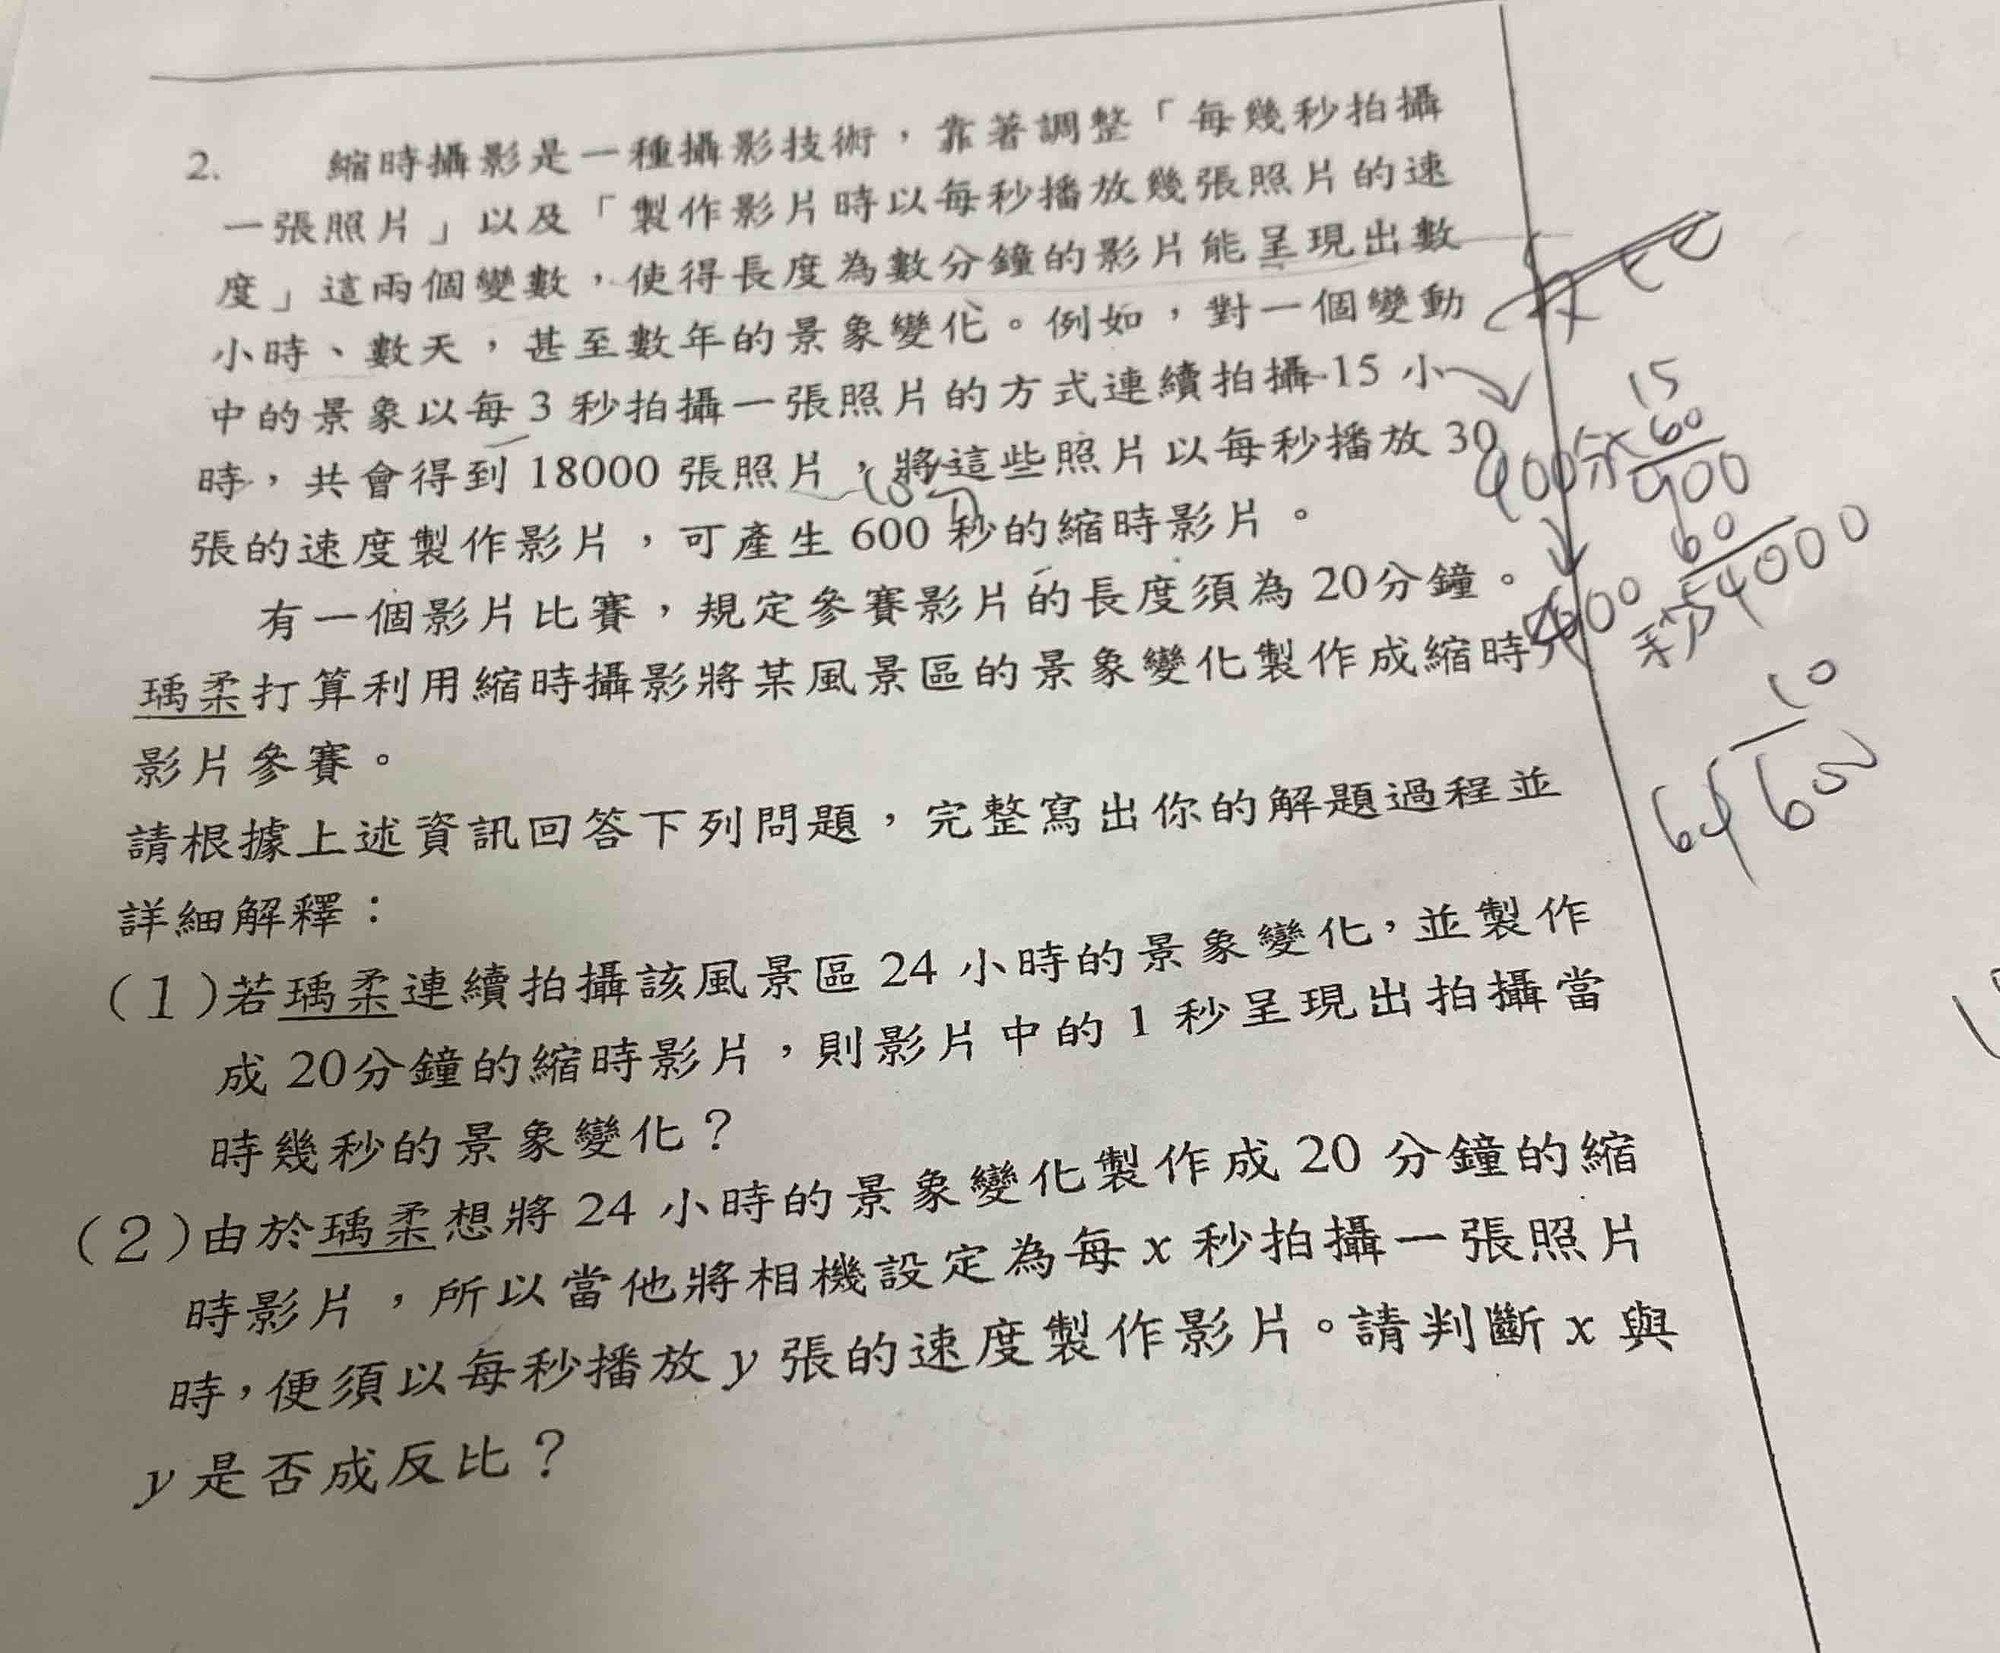 2. 縮時攝影是一種攝影技術，靠著調整「每幾秒拍攝
一張照片」以及「製作影片時以每秒播放幾張照片的速
度」這兩個變數，使得長度為數分鐘的影片能呈現出數
小時、數天，甚至數年的景象變化。例如，對一個變動
中的景象以每 3 秒拍攝一張照片的方式連續拍攝 15 小
時，共會得到 18000 張照片，將這些照片以每秒播放 30
張的速度製作影片，可產生 600 秒的縮時影片。
有一個影片比賽，規定參賽影片的長度須為 20分鐘。
瑀柔打算利用縮時攝影將某風景區的景象變化製作成縮時
影片參賽。
請根據上述資訊回答下列問題，完整寫出你的解題過程並
詳細解釋：
(1)若瑀柔連續拍攝該風景區 24 小時的景象變化，並製作
成 20分鐘的縮時影片，則影片中的 1 秒呈現出拍攝當
時幾秒的景象變化？
(2)由於瑀柔想將 24 小時的景象變化製作成 20 分鐘的縮
時影片，所以當他將相機設定為每 x 秒拍攝一張照片
時，便須以每秒播放 y 張的速度製作影片。請判斷 x 與
y 是否成反比？
15
60
900
60
54000
900分
10